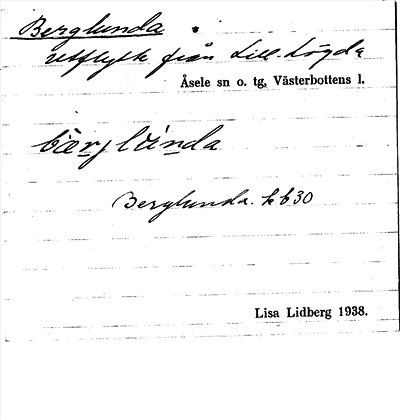 Berglunda
utflytt från Lill-Lögda
Åsele sn o. tg, Västerbottens l.
bær̲j lün̲da
Berglunda. kb30
Lisa Lidberg 1938.